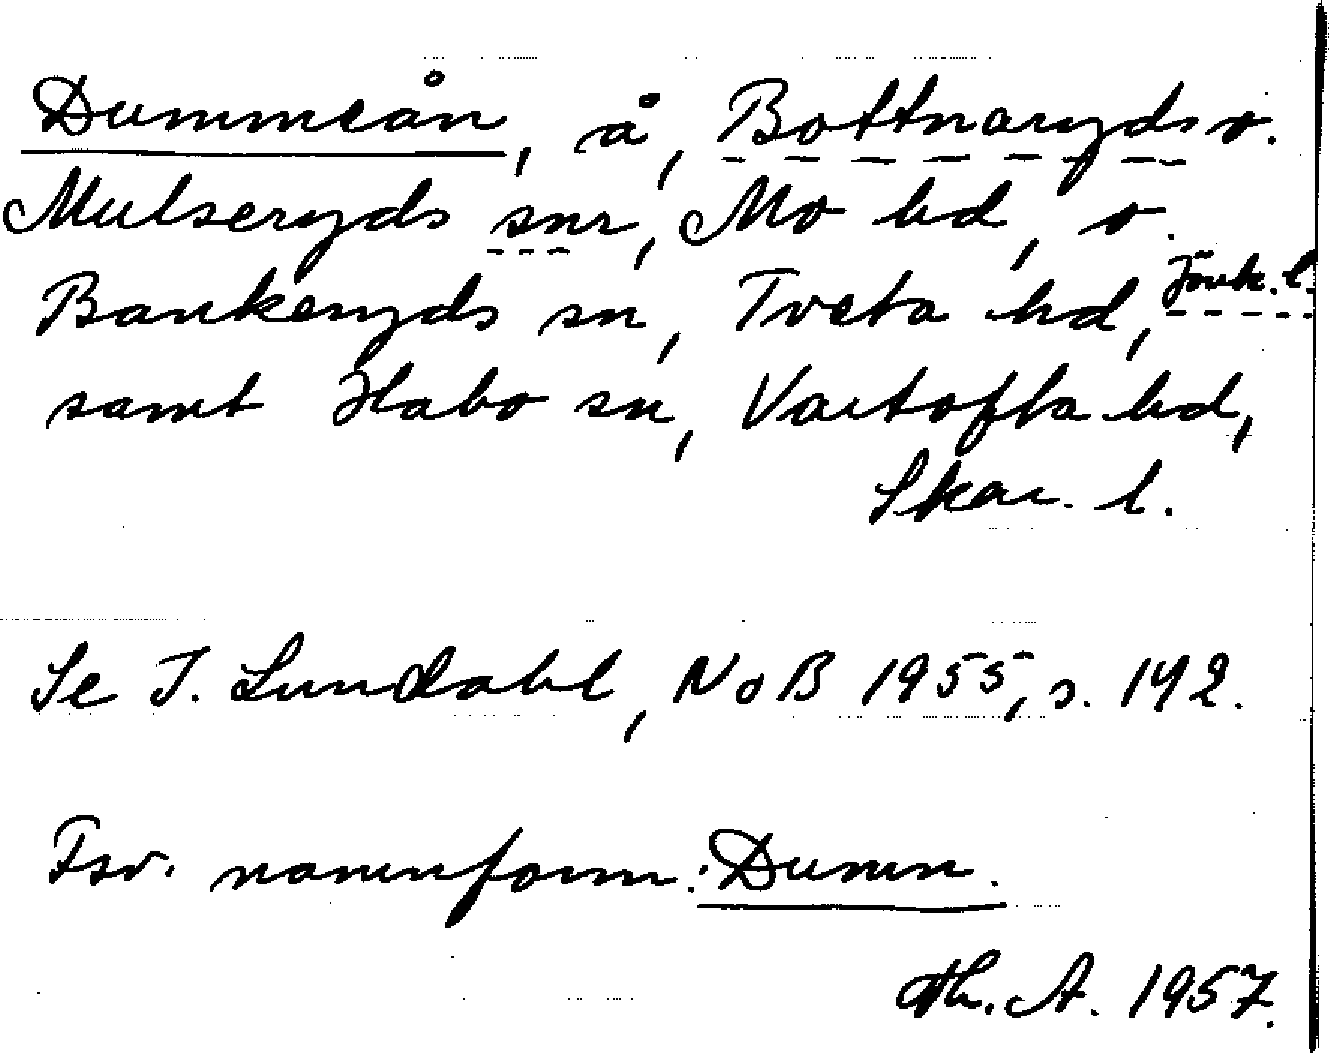 Dummeån, å, Bottnaryds o.
Mulseryds snr, Mo hd, o.
Bankeryds sn, Tveta hd, Jönk. l.
samt Habo sn, Vartofta hd,
Skar. l.
Se I. Lundahl, NoB 1955, s. 142.
Fsv. namnform: Dumn.
Th. A. 1957.